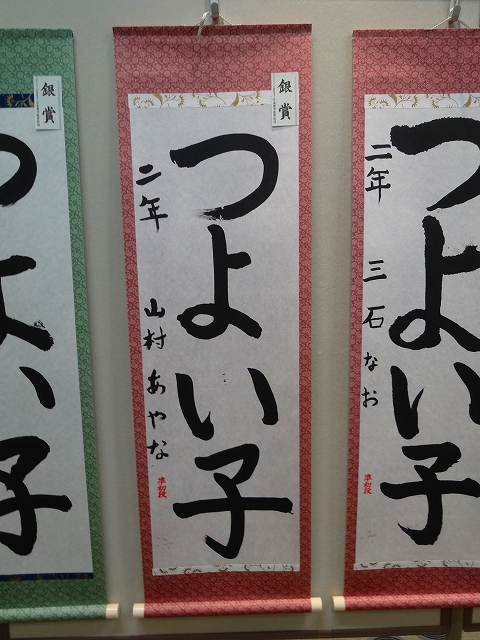 つよい子
二年 三石なお
準初段
銀賞
つよい子
二年 山村あやな
準初段
銀賞
つよい子